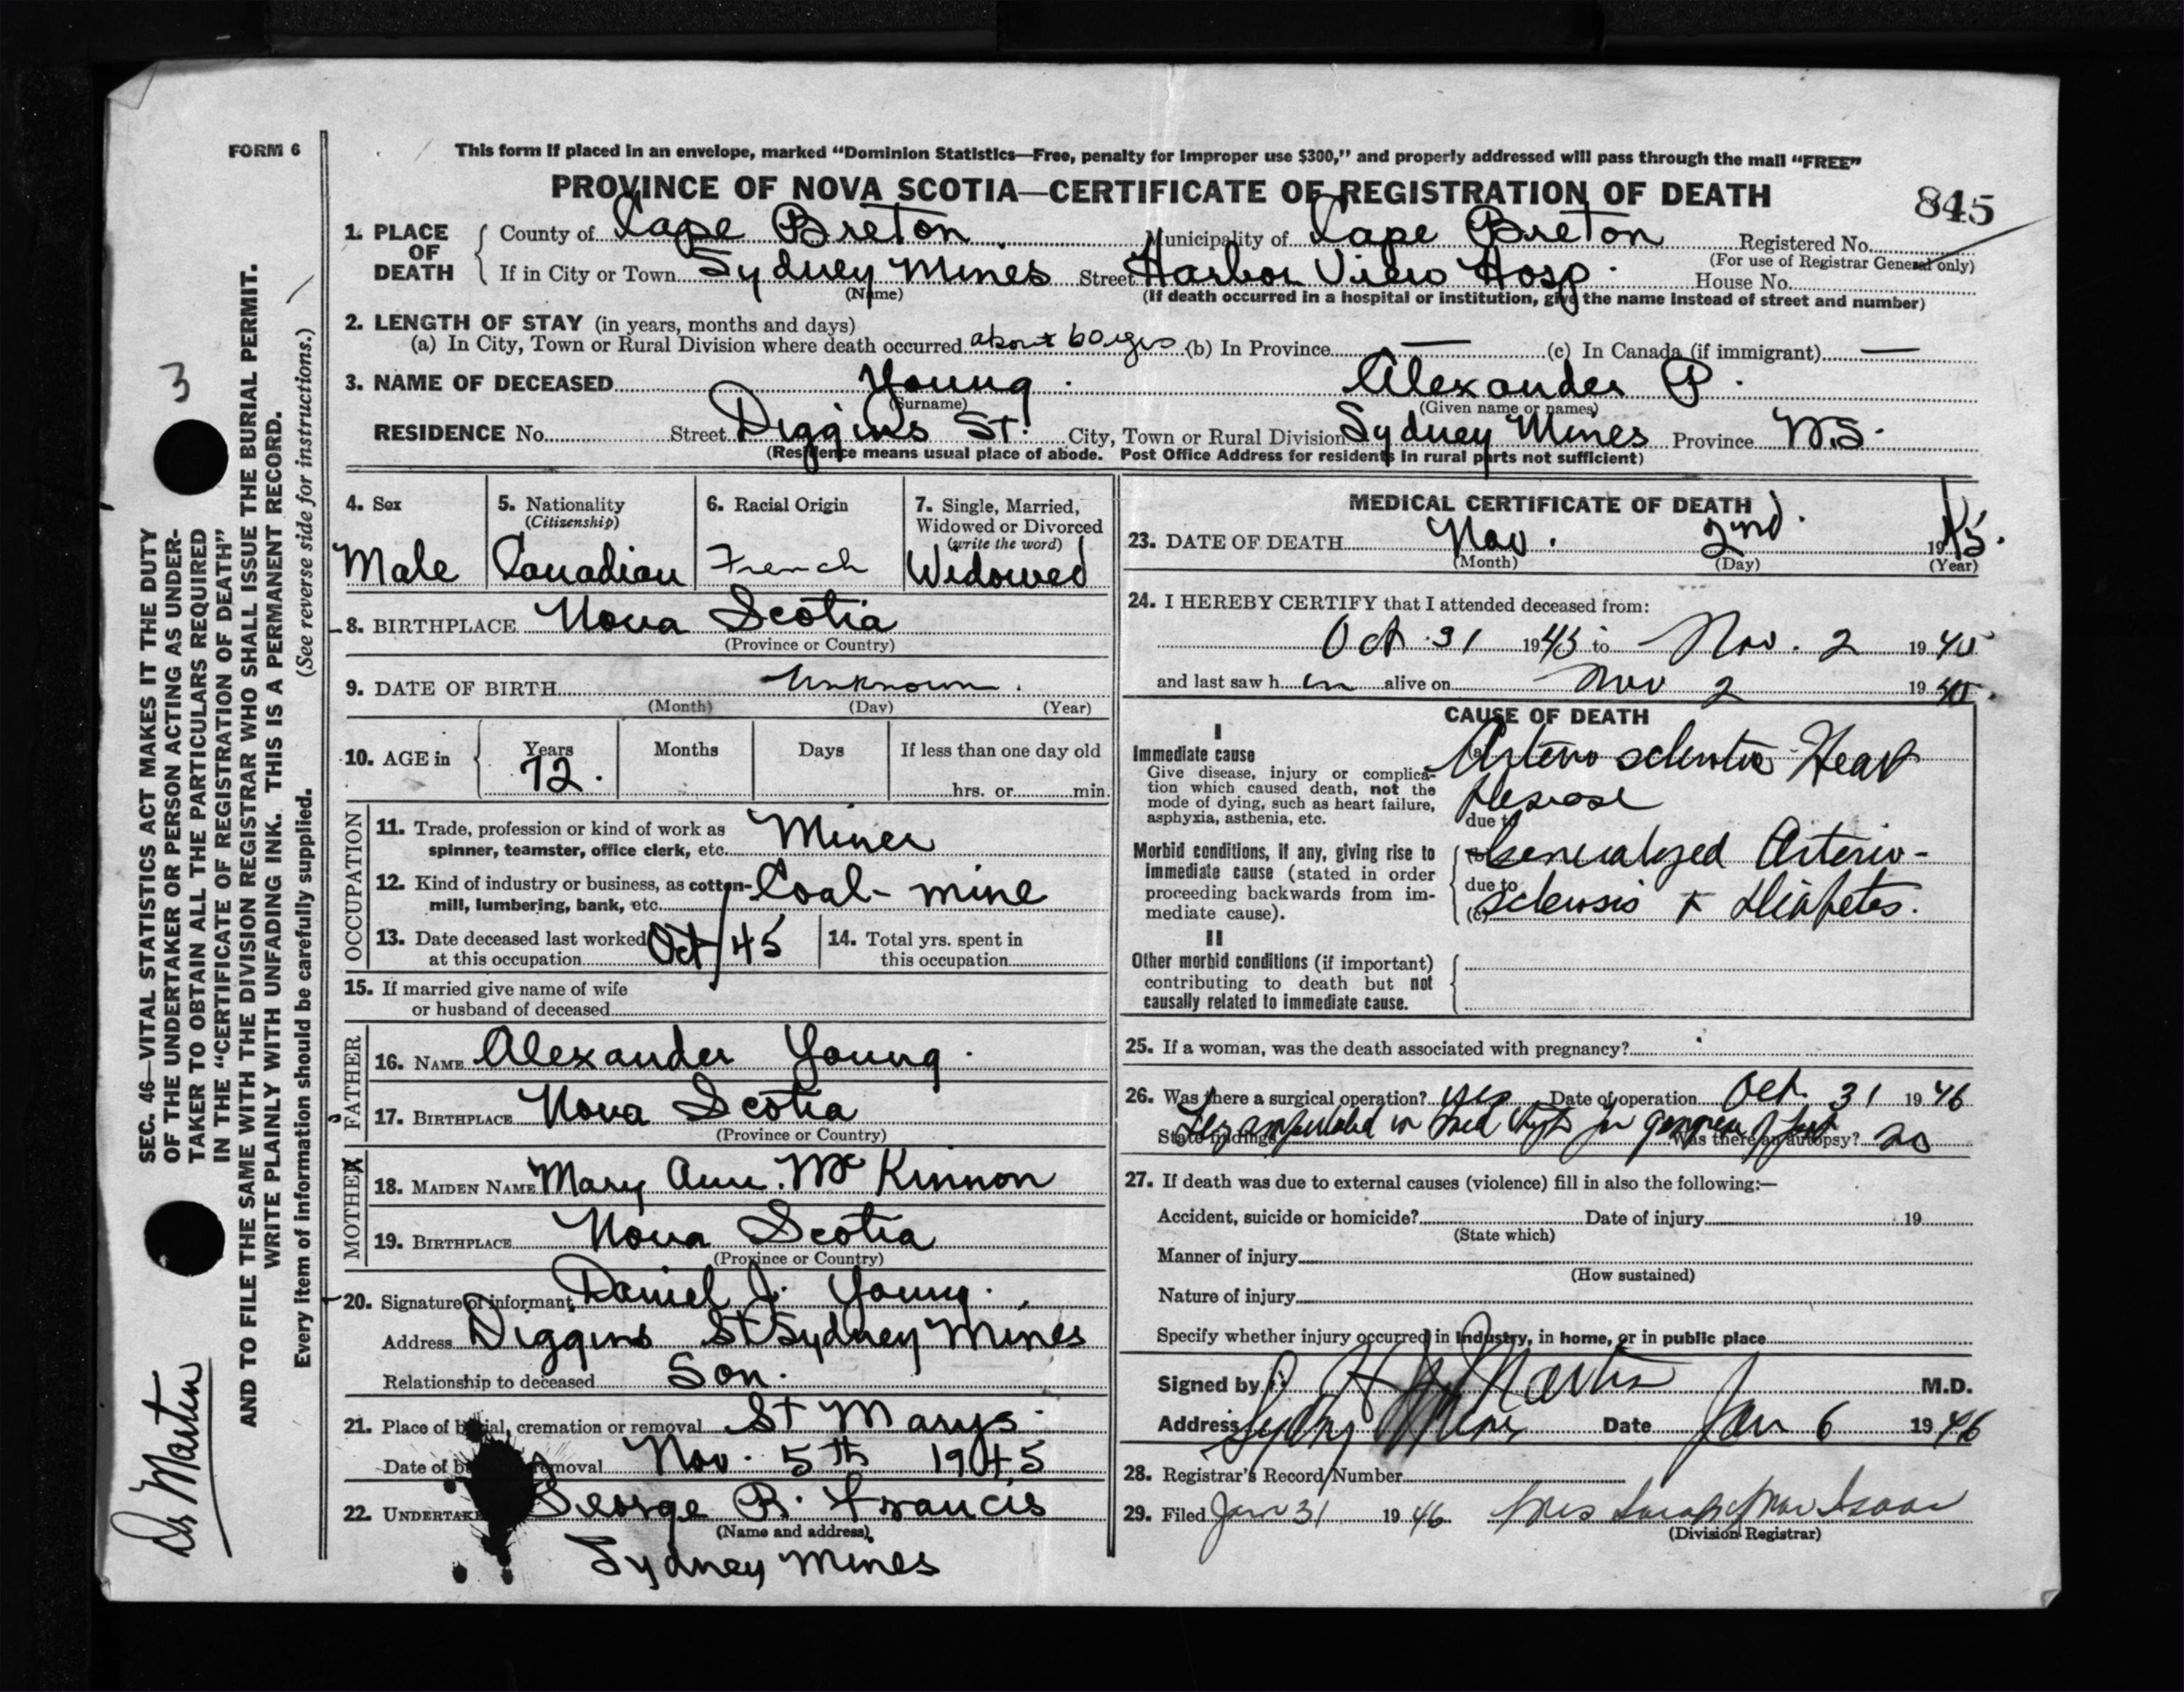 FORM 6
This form if placed in an envelope, marked "Dominion Statistics—Free, penalty for improper use $300," and properly addressed will pass through the mail "FREE"
PROVINCE OF NOVA SCOTIA—CERTIFICATE OF REGISTRATION OF DEATH
845
1. PLACE OF DEATH County of Cape Breton Municipality of Cape Breton Registered No.
(For use of Registrar General only)
If in City or Town Sydney Mines Street Harbor View Hosp. House No.
(Name) (If death occurred in a hospital or institution, give the name instead of street and number)
2. LENGTH OF STAY (in years, months and days)
(a) In City, Town or Rural Division where death occurred about 60 yrs (b) In Province — (c) In Canada (if immigrant) —
3. NAME OF DECEASED Young. Alexander P.
(Surname) (Given name or names)
RESIDENCE No. Street Diggins St. City, Town or Rural Division Sydney Mines Province N.S.
(Residence means usual place of abode. Post Office Address for residents in rural parts not sufficient)
4. Sex
Male
5. Nationality
(Citizenship)
Canadian
6. Racial Origin
French
7. Single, Married, Widowed or Divorced
(write the word)
Widowed
8. BIRTHPLACE Nova Scotia
(Province or Country)
9. DATE OF BIRTH Unknown.
(Month) (Day) (Year)
10. AGE in Years Months Days If less than one day old
72. hrs. or min.
OCCUPATION
11. Trade, profession or kind of work as Miner
spinner, teamster, office clerk, etc.
12. Kind of industry or business, as cotton- Coal-mine
mill, lumbering, bank, etc.
13. Date deceased last worked Oct/45
at this occupation
14. Total yrs. spent in
this occupation
15. If married give name of wife
or husband of deceased
FATHER
16. NAME Alexander Young.
17. BIRTHPLACE Nova Scotia
(Province or Country)
MOTHER
18. MAIDEN NAME Mary Ann. McKinnon
19. BIRTHPLACE Nova Scotia
(Province or Country)
20. Signature of informant Daniel J. Young.
Address Diggins St Sydney Mines
Relationship to deceased Son.
21. Place of burial, cremation or removal St Marys.
Date of removal Nov. 5th 1945
22. UNDERTAKER George R. Francis
(Name and address)
Sydney Mines
MEDICAL CERTIFICATE OF DEATH
23. DATE OF DEATH Nov. 2nd. 1945.
(Month) (Day) (Year)
24. I HEREBY CERTIFY that I attended deceased from:
Oct 31 1945 to Nov. 2 1945
and last saw h im alive on Nov 2 1945.
CAUSE OF DEATH
I
Immediate cause
Give disease, injury or complication which caused death, not the mode of dying, such as heart failure, asphyxia, asthenia, etc.
(a) Arterio sclerotic Heart
Disease
due to
Morbid conditions, if any, giving rise to immediate cause (stated in order proceeding backwards from immediate cause).
(b) Generalyzed Arterio-
due to
(c) sclerosis + Diabetes.
II
Other morbid conditions (if important) contributing to death but not causally related to immediate cause.
25. If a woman, was the death associated with pregnancy?
26. Was there a surgical operation? yes Date of operation Oct. 31 1946
State findings Leg amputated in mid thigh for gangrene of foot Was there an autopsy? no
27. If death was due to external causes (violence) fill in also the following:—
Accident, suicide or homicide? Date of injury 19
(State which)
Manner of injury
(How sustained)
Nature of injury
Specify whether injury occurred in industry, in home, or in public place
Signed by Martin M.D.
Address Sydney Mines Date Jan 6 1946
28. Registrar's Record Number
29. Filed Jan 31 1946 Mrs Sarah MacIsaac
(Division Registrar)
3
SEC. 46—VITAL STATISTICS ACT MAKES IT THE DUTY
OF THE UNDERTAKER OR PERSON ACTING AS UNDER-
TAKER TO OBTAIN ALL THE PARTICULARS REQUIRED
IN THE "CERTIFICATE OF REGISTRATION OF DEATH"
AND TO FILE THE SAME WITH THE DIVISION REGISTRAR WHO SHALL ISSUE THE BURIAL PERMIT.
WRITE PLAINLY WITH UNFADING INK. THIS IS A PERMANENT RECORD.
Every item of information should be carefully supplied. (See reverse side for instructions.)
Dr Martin